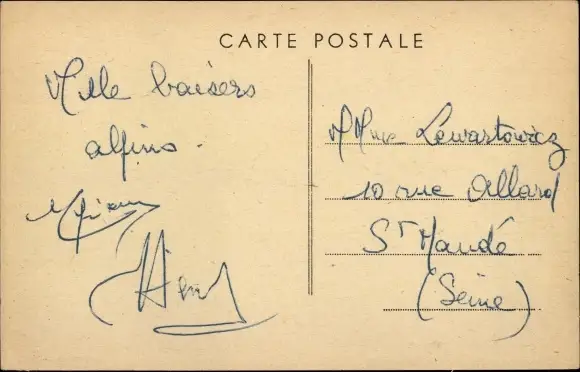 CARTE POSTALE
Mille baisers
alpins.
Henry
MMes Lewartowicz
10 rue Allard
St Mandé
(Seine)